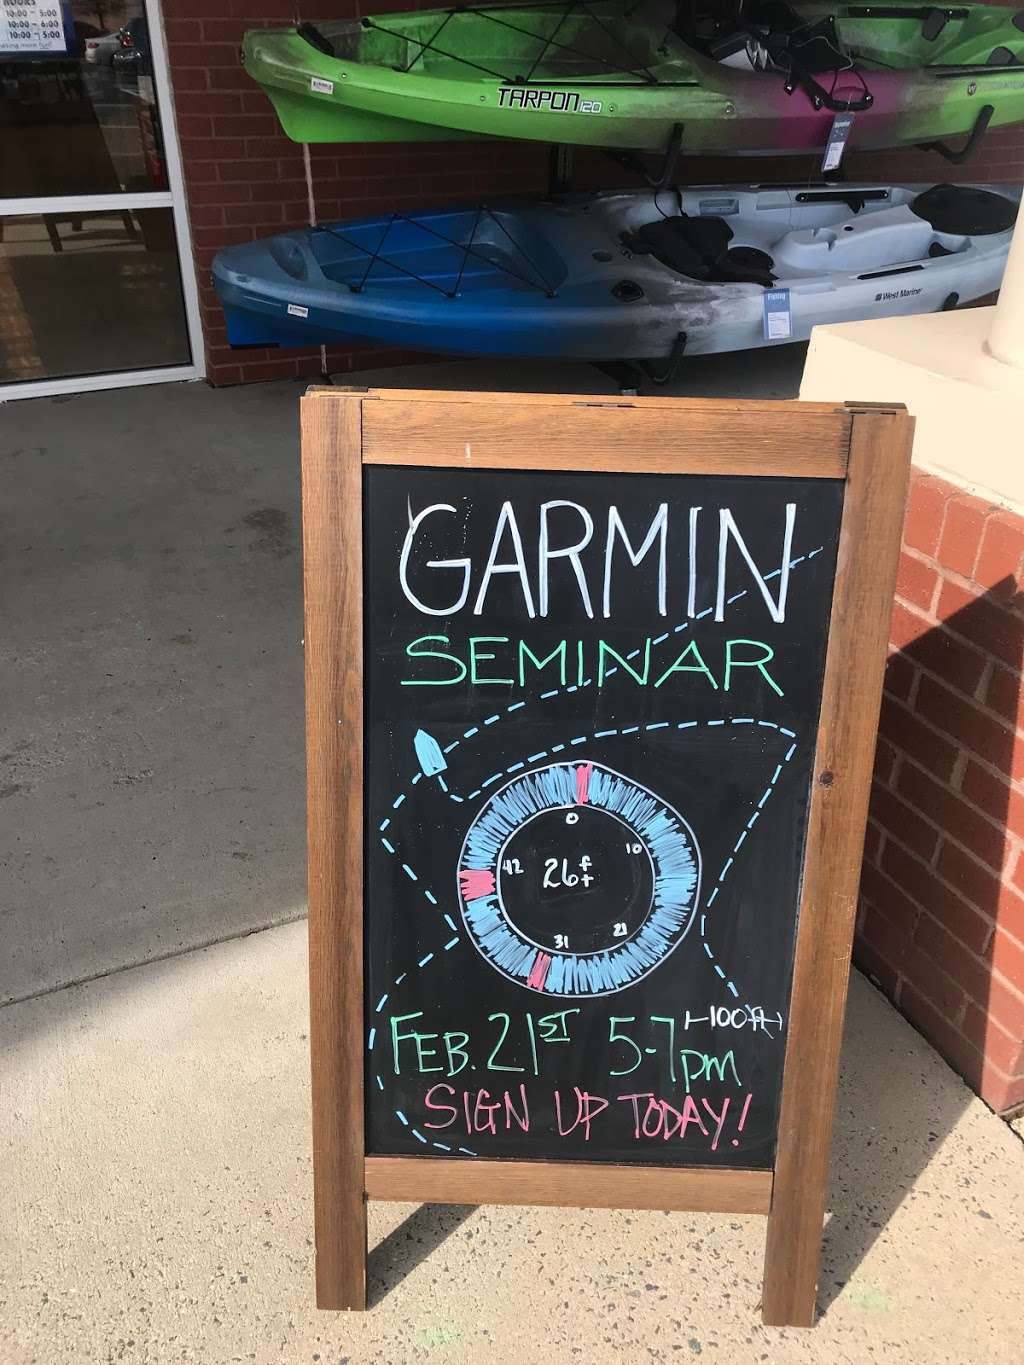 HOURS
10:00 - 5:00
10:00 - 6:00
10:00 - 5:00
TARPON 120
Fishing
West Marine
GARMIN
SEMINAR
0
10
42
26 ft
21
31
100ft
FEB. 21ST 5-7pm
SIGN UP TODAY!